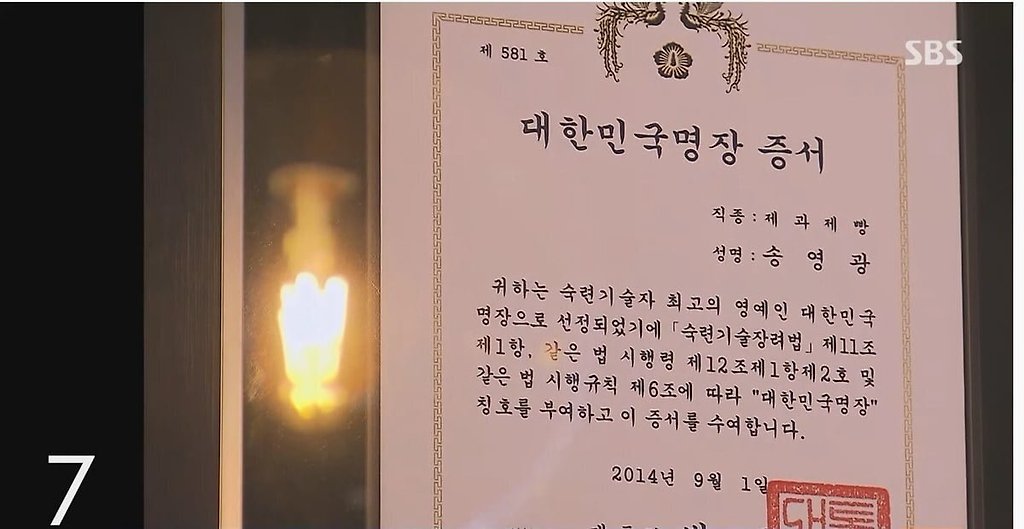 제 581 호
SBS
대한민국명장 증서
직종 : 제 과 제 빵
성명 : 송 영 광
귀하는 숙련기술자 최고의 영예인 대한민국
명장으로 선정되었기에 「숙련기술장려법」 제11조
제1항, 같은 법 시행령 제12조제1항제2호 및
같은 법 시행규칙 제6조에 따라 "대한민국명장"
칭호를 부여하고 이 증서를 수여합니다.
2014년 9월 1일
7